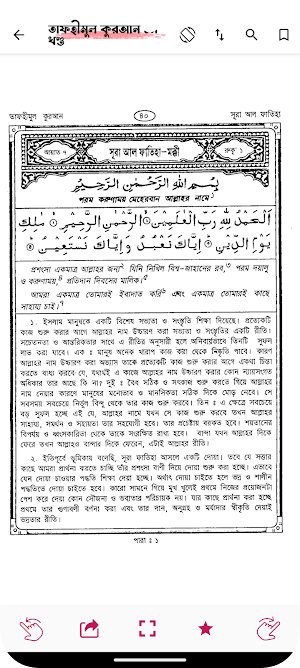 তাফহীমুল কুরআন ১ম
খন্ড
তাফহীমুল কুরআন
৪০
সূরা আল ফাতিহা
আয়াত ৭
সূরা আল ফাতিহা-মক্কী
রুকূ' ১
بِسْمِ اللهِ الرَّحْمٰنِ الرَّحِيْمِ
পরম করুণাময় মেহেরবান আল্লাহর নামে১
اَلْحَمْدُ لِلّٰهِ رَبِّ الْعٰلَمِيْنَ الرَّحْمٰنِ الرَّحِيْمِ مٰلِكِ
يَوْمِ الدِّيْنِ اِيَّاكَ نَعْبُدُ وَاِيَّاكَ نَسْتَعِيْنُ
প্রশংসা একমাত্র আল্লাহর জন্য২ যিনি নিখিল বিশ্ব-জাহানের রব,৩ পরম দয়ালু
ও করুণাময়,৪ প্রতিদান দিবসের মালিক।৫
আমরা একমাত্র তোমারই ইবাদাত করি৬ এবং একমাত্র তোমারই কাছে
সাহায্য চাই।৭
১. ইসলাম মানুষকে একটি বিশেষ সভ্যতা ও সংস্কৃতি শিক্ষা দিয়েছে। প্রত্যেকটি
কাজ শুরু করার আগে আল্লাহর নাম উচ্চারণ করা সভ্যতা ও সংস্কৃতির একটি রীতি।
সচেতনতা ও আন্তরিকতার সাথে এ রীতির অনুসারী হলে অনিবার্যভাবে তিনটি সুফল
লাভ করা যাবে। এক ঃ মানুষ অনেক খারাপ কাজ করা থেকে নিষ্কৃতি পাবে। কারণ
আল্লাহর নাম উচ্চারণ করা অভ্যাস তাকে প্রত্যেকটি কাজ শুরু করার আগে একথা চিন্তা
করতে বাধ্য করবে যে, যথার্থই এ কাজে আল্লাহর নাম উচ্চারণ করার কোন ন্যায়সংগত
অধিকার তার আছে কি না? দুই ঃ বৈধ সঠিক ও সৎকাজ শুরু করতে গিয়ে আল্লাহর
নাম নেয়ার কারণে মানুষের মনোভাব ও মানসিকতা সঠিক দিকে মোড় নেবে। সে
সবসময় সবচেয়ে নির্ভুল বিন্দু থেকে তার কাজ শুরু করবে। তিন ঃ এ ক্ষেত্রে সবচেয়ে
বড় সুফল হচ্ছে এই যে, আল্লাহর নামে যখন সে কাজ শুরু করবে তখন আল্লাহর
সাহায্য, সমর্থন ও সহায়তা তার সহযোগী হবে। তার প্রচেষ্টায় বরকত হবে। শয়তানের
বিপর্যয় ও ধ্বংসকারিতা থেকে তাকে সংরক্ষিত রাখা হবে। বান্দা যখন আল্লাহর দিকে
ফেরে তখন আল্লাহও বান্দার দিকে ফেরেন, এটাই আল্লাহর রীতি।
২. ইতিপূর্বে ভূমিকায় বলেছি, সূরা ফাতিহা আসলে একটি দোয়া। তবে যে সত্তার
কাছে আমরা প্রার্থনা করতে চাচ্ছি তাঁর প্রশংসা বাণী দিয়ে দোয়া শুরু করা হচ্ছে। এভাবে
যেন দোয়া চাওয়ার পদ্ধতি শিক্ষা দেয়া হচ্ছে। অর্থাৎ দোয়া চাইতে হলে ভদ্র ও শালীন
পদ্ধতিতে দোয়া চাইতে হবে। কারো সামনে গিয়ে মুখ খুলেই প্রথমে নিজের প্রয়োজনটা
পেশ করে দেয়া কোন সৌজন্য ও ভব্যতার পরিচায়ক নয়। যার কাছে প্রার্থনা করা হচ্ছে
প্রথমে তার গুণাবলী বর্ণনা করা এবং তার দান, অনুগ্রহ ও মর্যাদার স্বীকৃতি দেয়াই
ভদ্রতার রীতি।
পারা ঃ ১